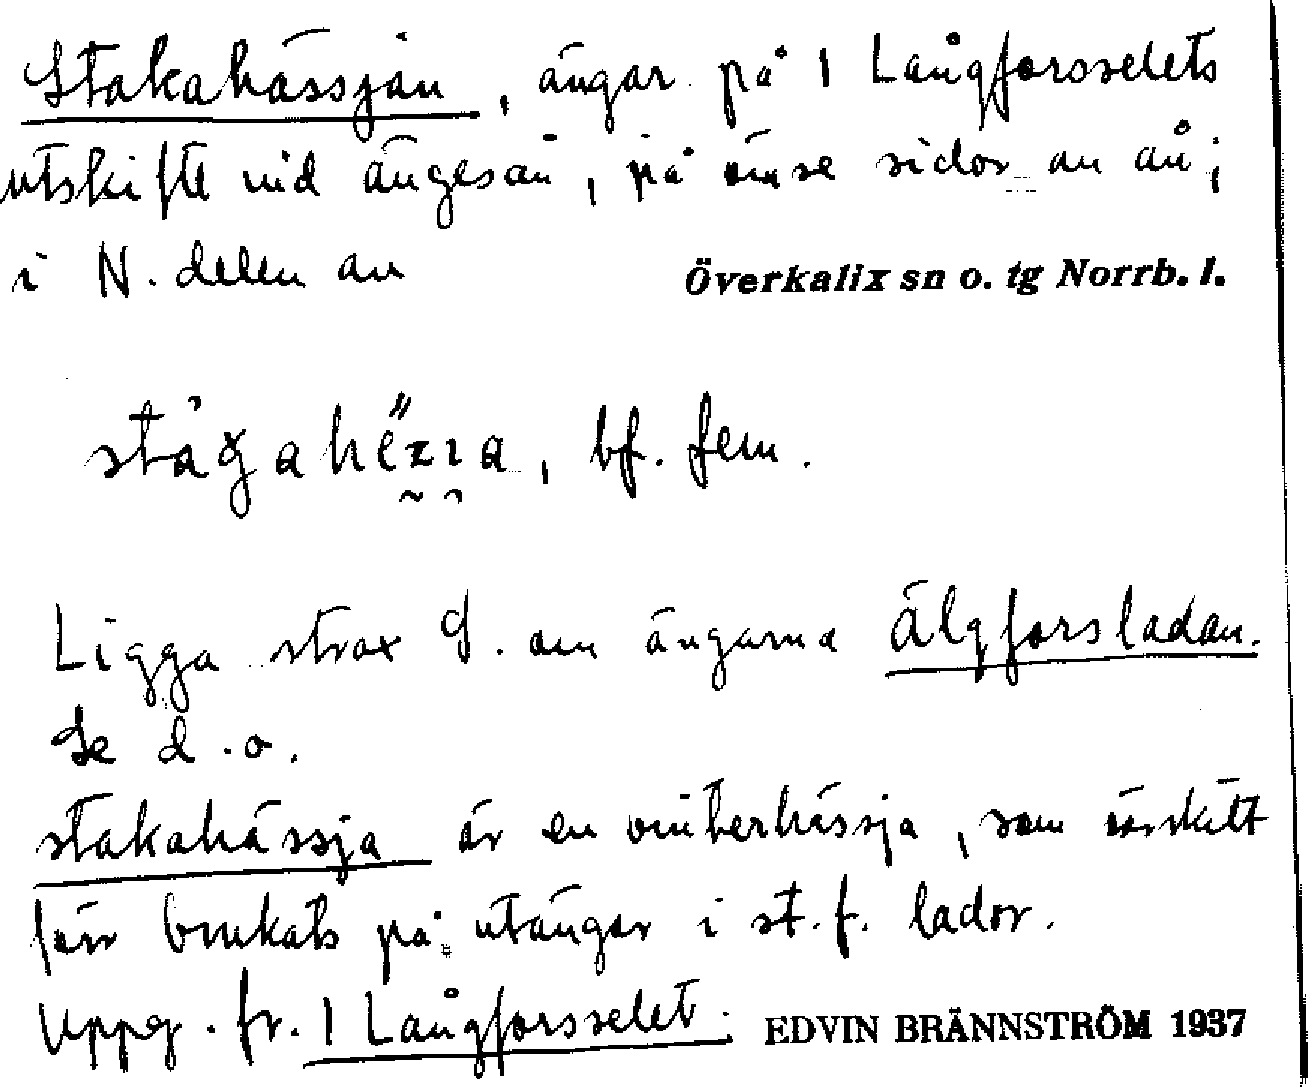 Stakahässjan, ängar på 1 Långforsselets
utskifte vid ängesån, på ömse sidor av ån;
i N. delen av Överkalix sn o. tg Norrb. l.
bf. fem.
Ligga strax S. om ängarna älgforsladan.
Se d.o.
stakahässja är en vinterhässja, som särskilt
förr brukats på utängar i st. f. lador.
Uppg. fr. 1 Långforsselet. EDVIN BRÄNNSTRÖM 1937